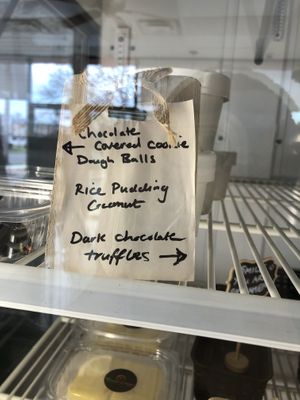 Chocolate
← Covered cookie
Dough Balls
Rice Pudding
Coconut
Dark chocolate
truffles →